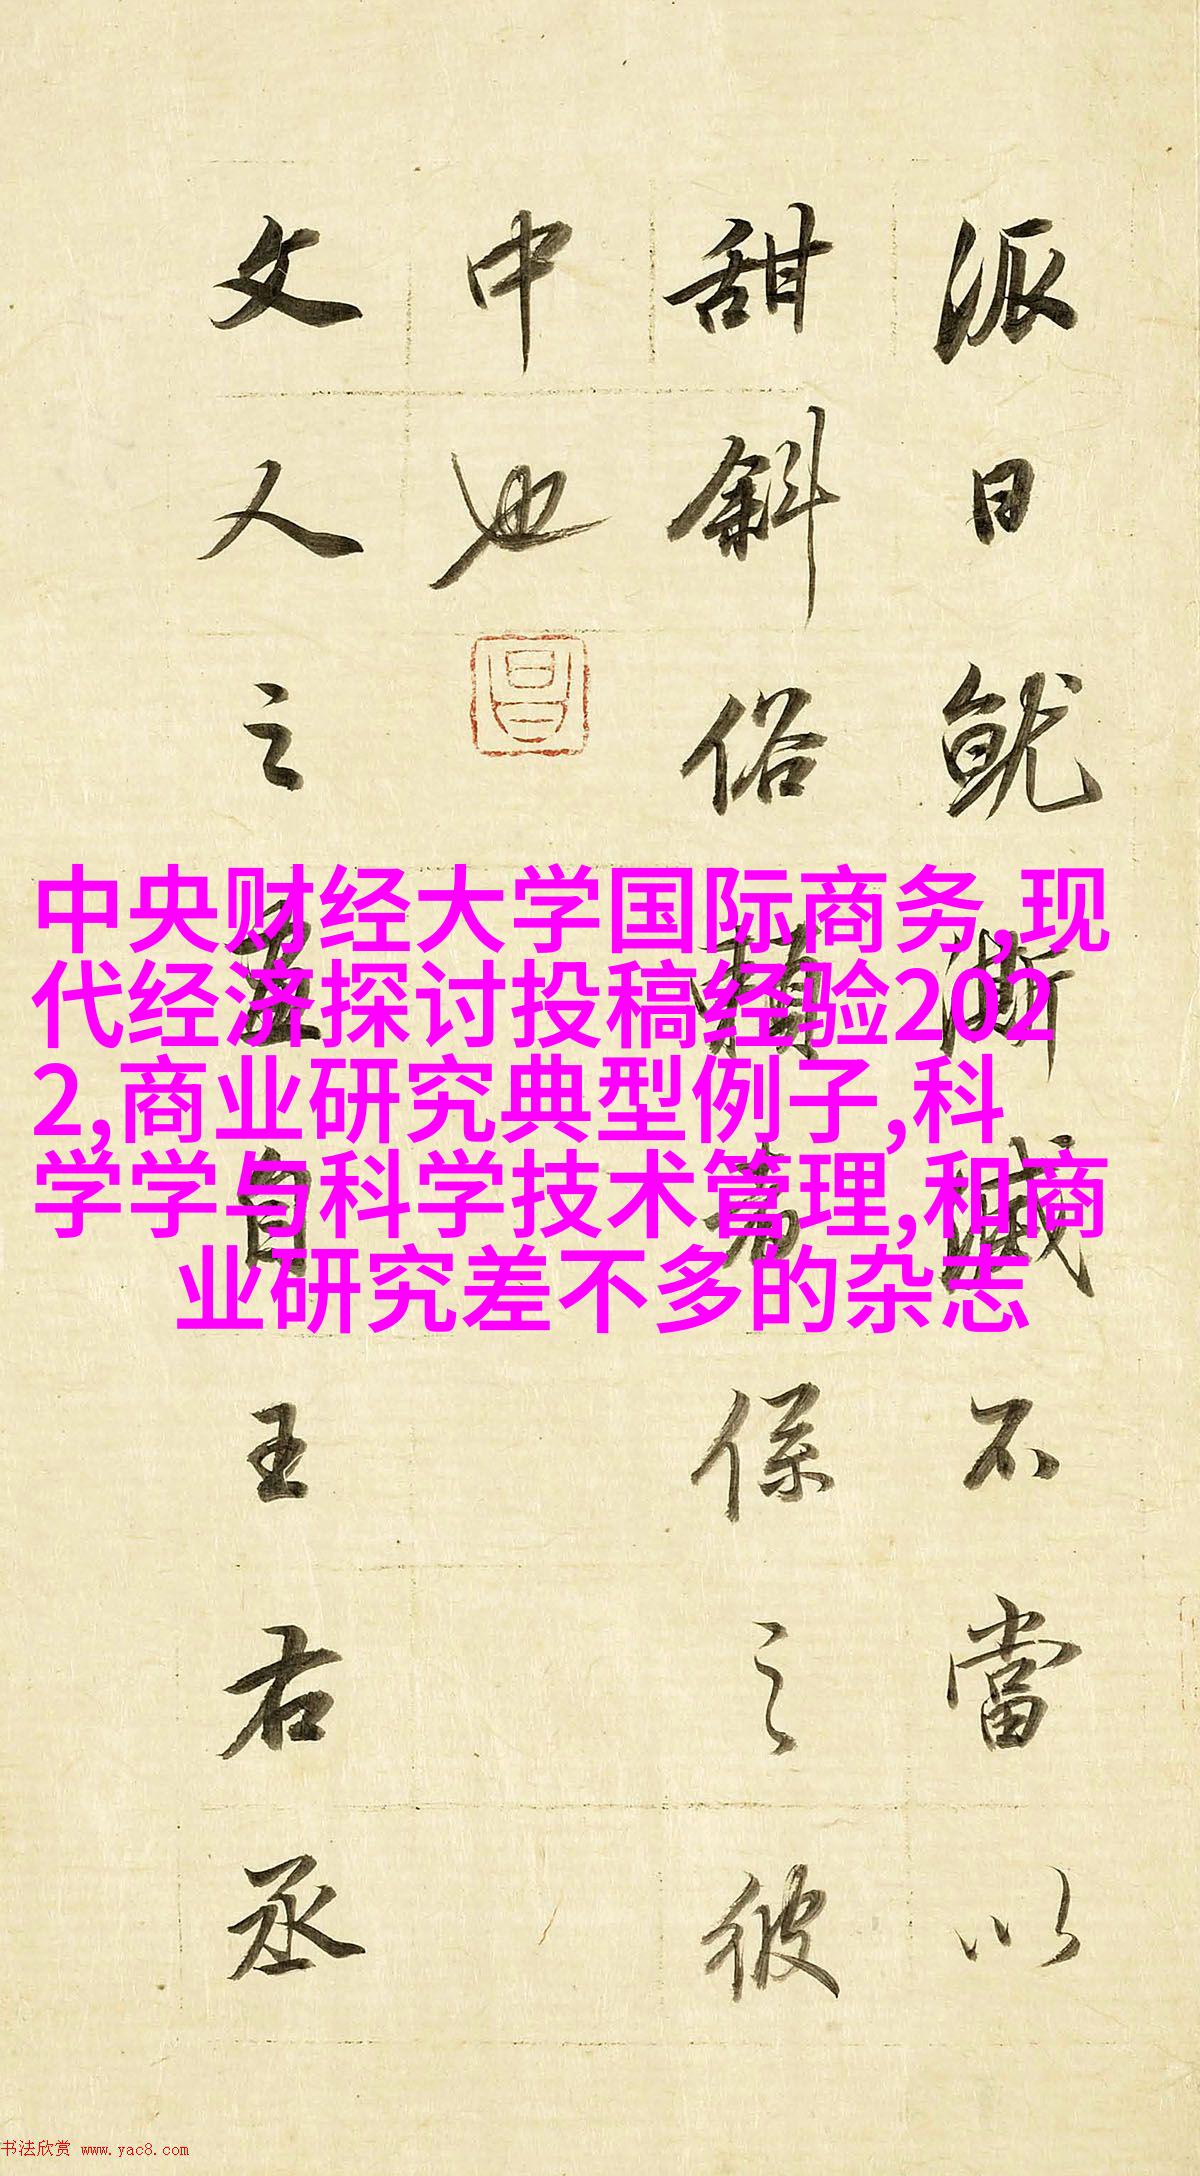 派日就澌滅不當以
甜斜俗賴者係之彼
中也
昌
文人之畫自王右丞
中央财经大学国际商务,现
代经济探讨投稿经验202
2,商业研究典型例子,科
学学与科学技术管理,和商
业研究差不多的杂志
书法欣赏 www.yac8.com